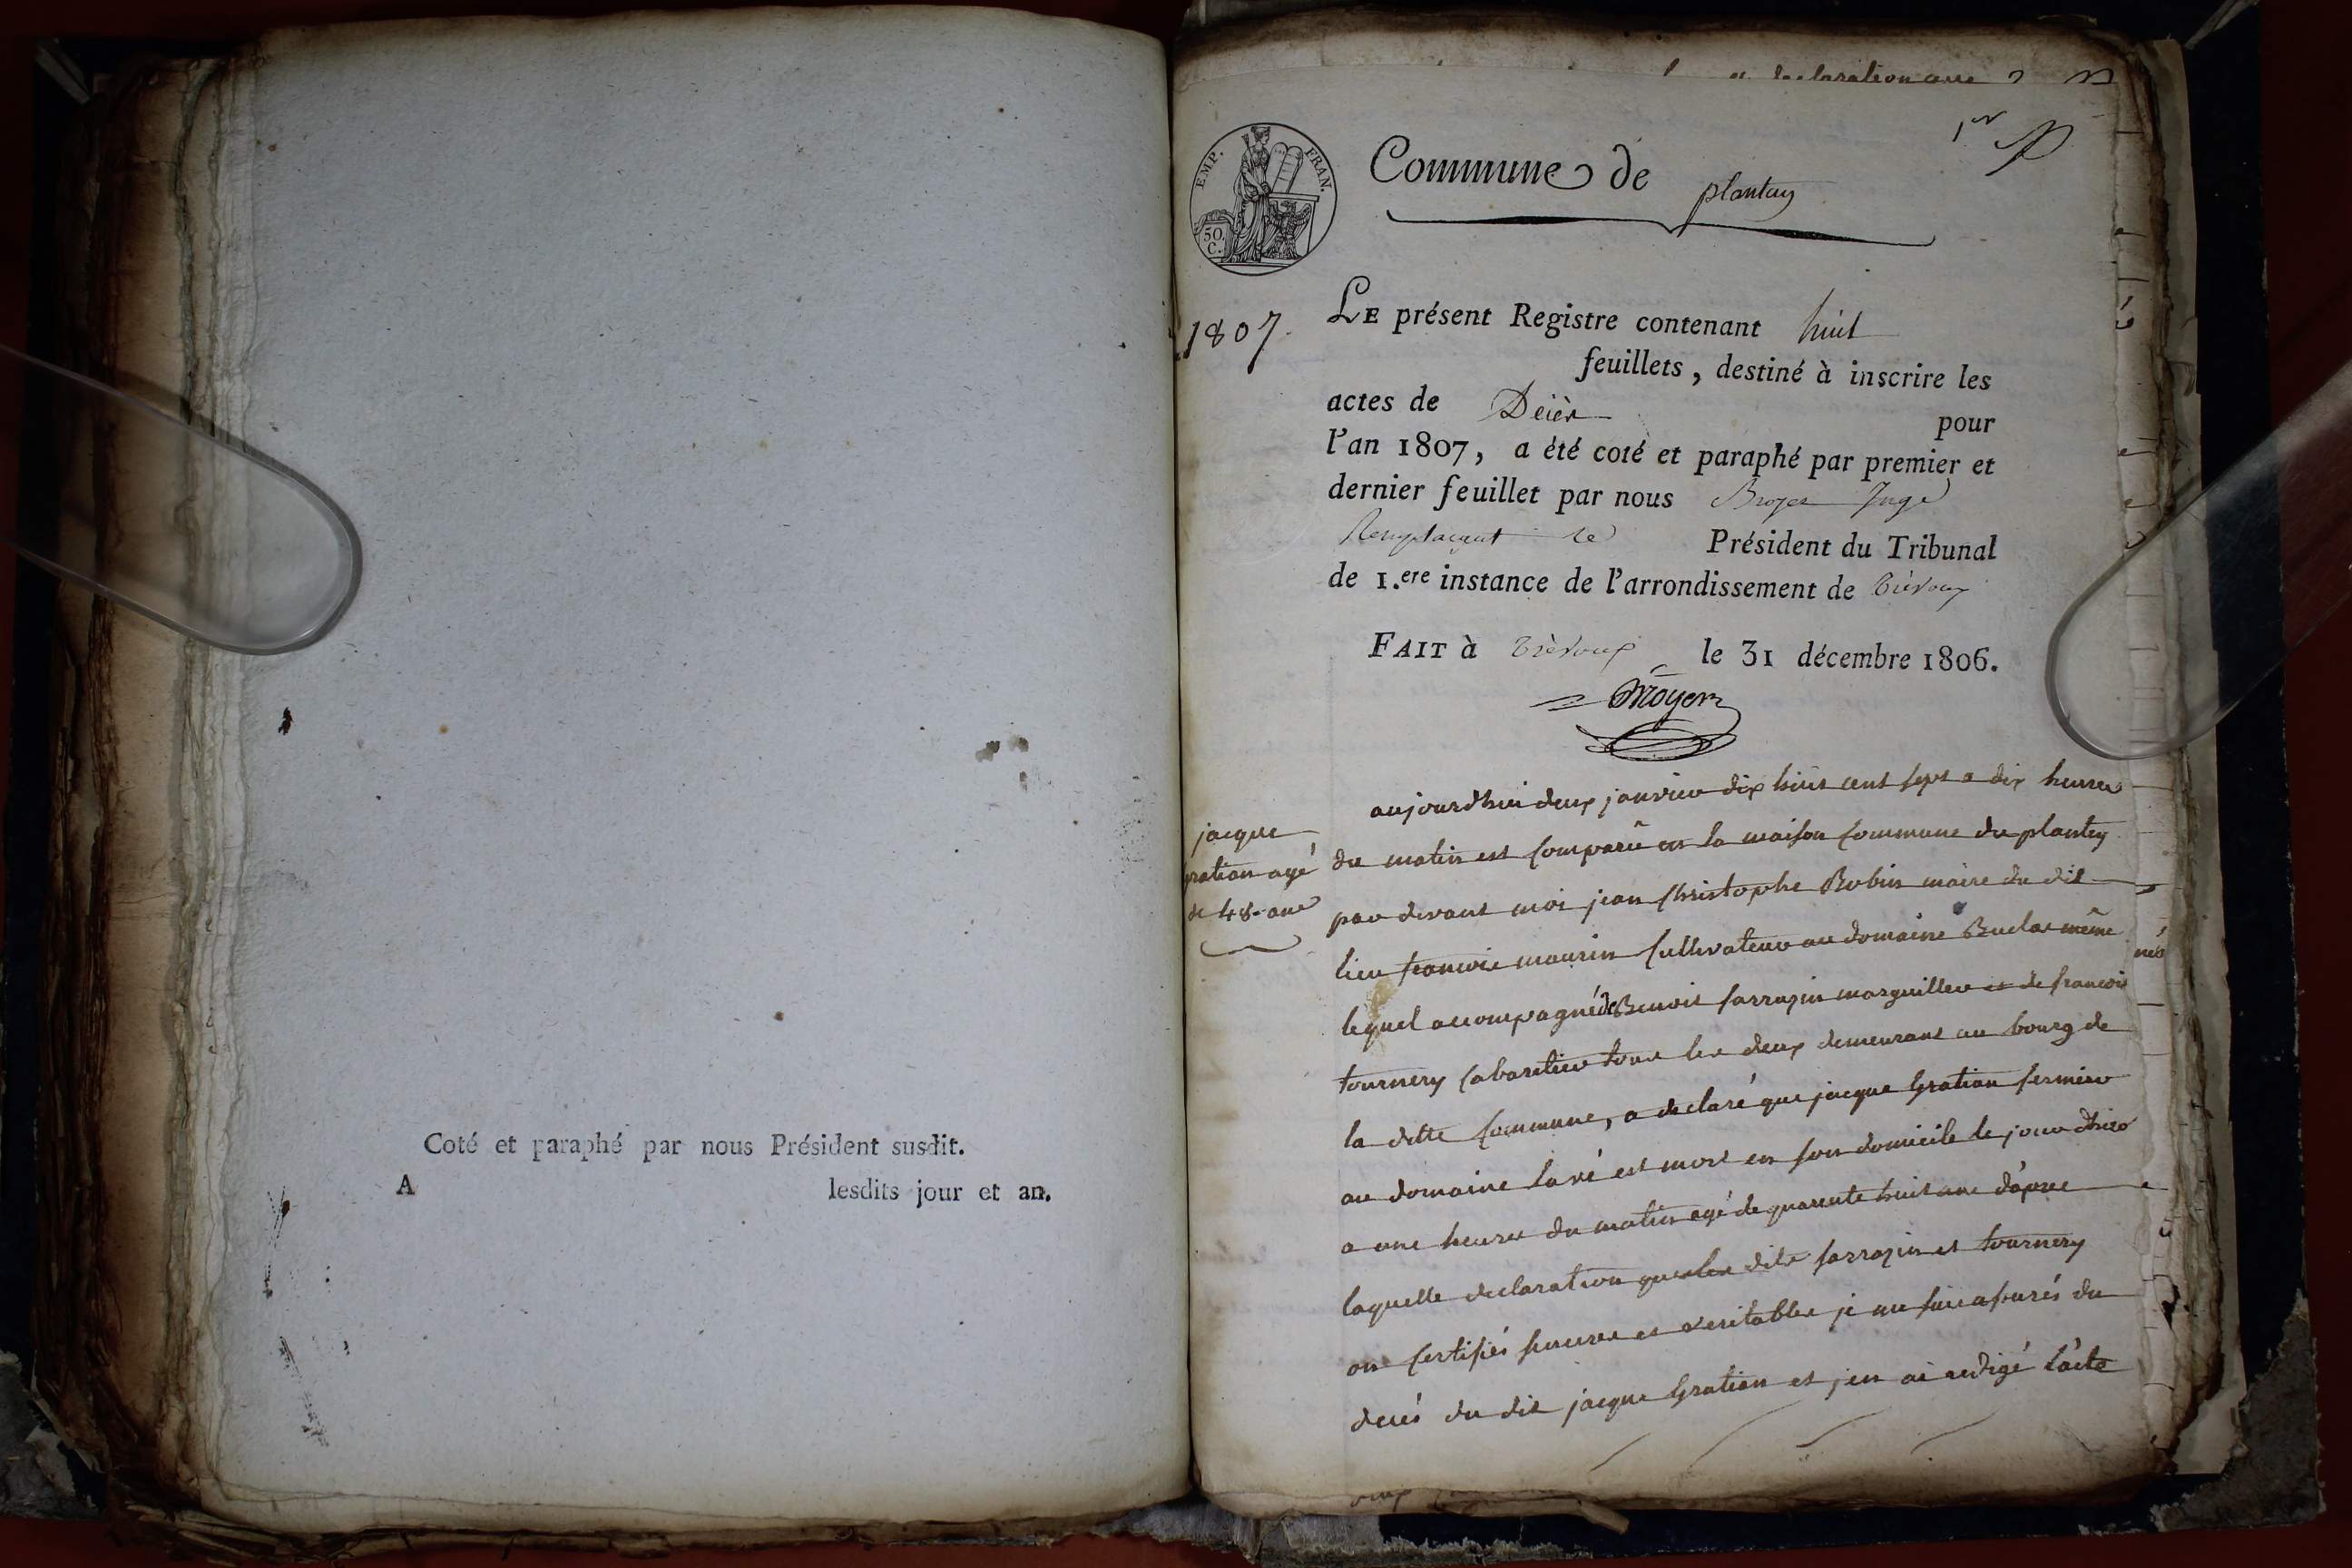 Coté et paraphé par nous Président susdit.
A lesdits jour et an.
declaration
1er
EMP. FRAN.
50 C.
Commune de plantay
1807.
LE présent Registre contenant huit
feuillets, destiné à inscrire les
actes de Décès pour
l'an 1807, a été coté et paraphé par premier et
dernier feuillet par nous Broyer Juge
Remplaçant le Président du Tribunal
de 1.ere instance de l'arrondissement de Trévoux
FAIT à Trévoux le 31 décembre 1806.
Broyer
jacque
gratian agé
de 48. ans
aujourdhui deux janvier dix huit cent sept a dix heures
du matin est comparû en la maison commune du plantey
par devant moi jean christophe Robin maire du dit
lieu francois maurin cultivateur au domaine Buclas même
lequel accompagné de Benoit sarrazin marguiller et de francois
tournery cabaretier tous les deux demeurant au bourg de
la ditte commune, a declaré que jacque Gratian fermier
au domaine lavé est mort en son domicile le jour dhier
a une heures du matin agé de quarente huit ans d'apres
laquelle declaration que les dits sarrazin et tournery
on certifiés sinceres et veritables je me suis assurés du
decés du dit jacque Gratian et j'en ai redigé l'acte